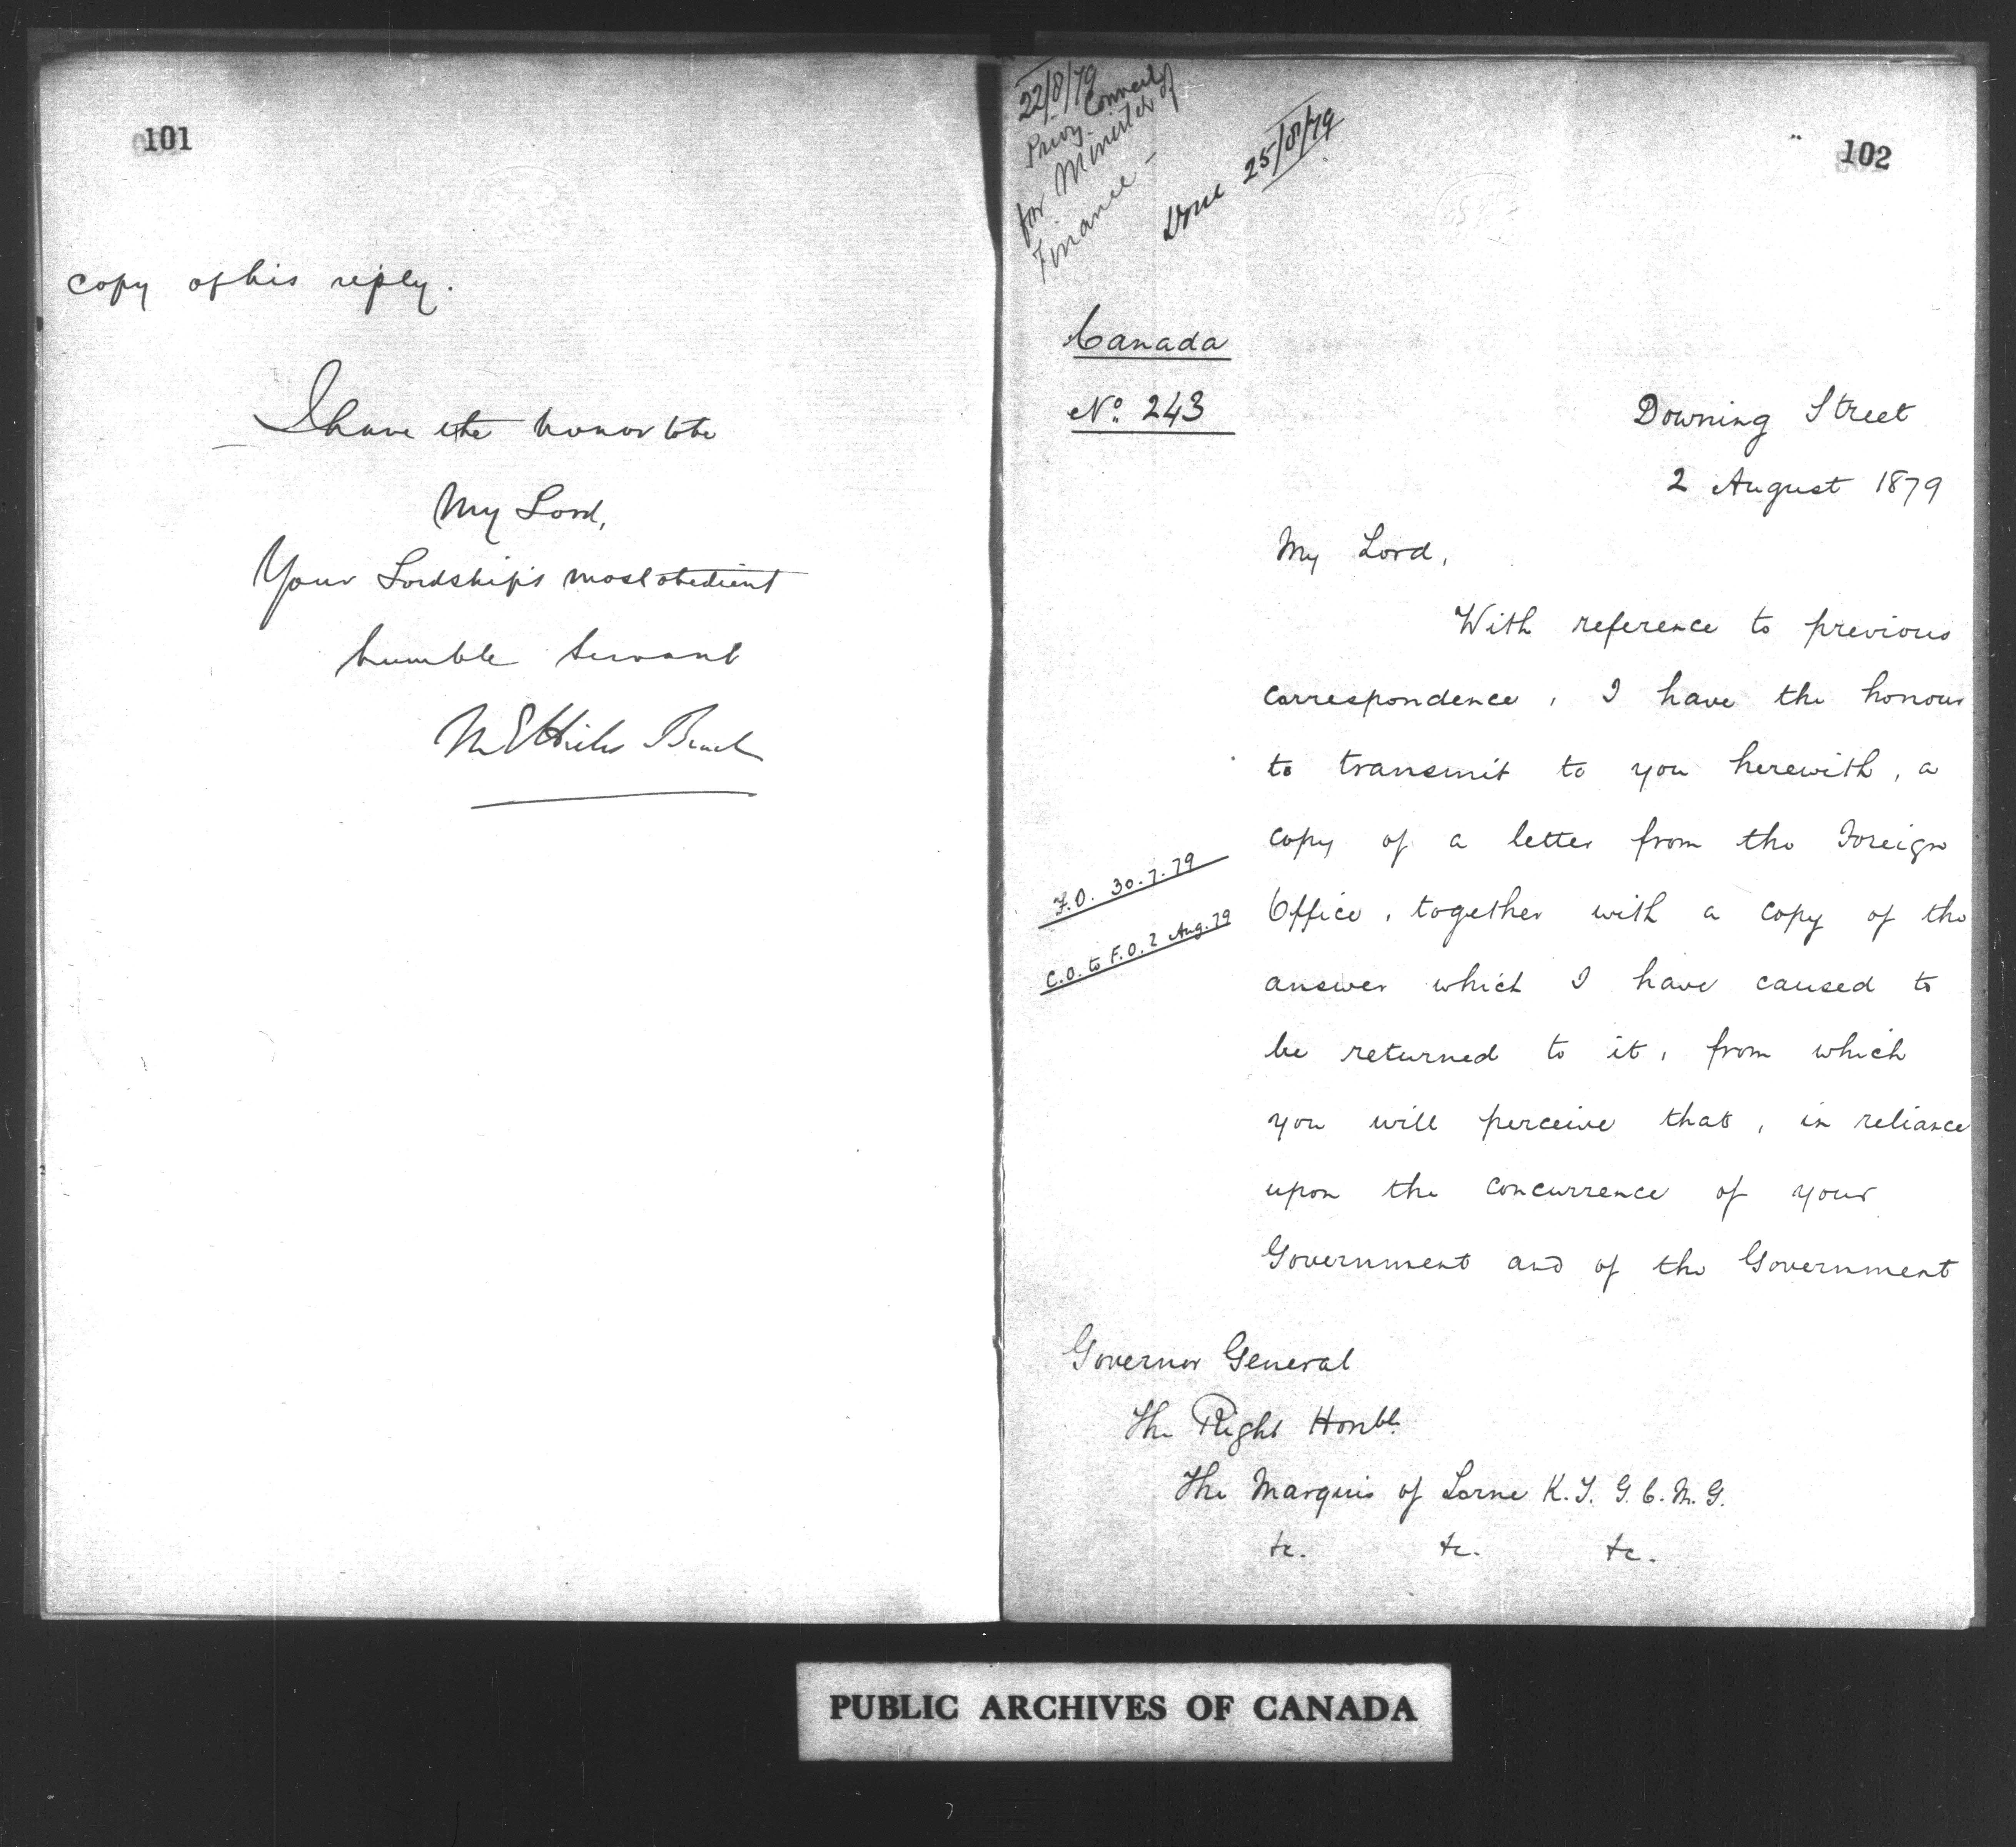 101
copy of his reply.
I have the honor to be
My Lord,
Your Lordship's most obedient
humble servant
M E Hicks Beach
22/8/79
Privy Council
for Minister of
Finance –
Done 25/8/79
102
Canada
No. 243
Downing Street
2 August 1879
My Lord,
With reference to previous
correspondence, I have the honour
to transmit to you herewith, a
copy of a letter from the Foreign
Office, together with a copy of the
answer which I have caused to
be returned to it, from which
you will perceive that, in reliance
upon the concurrence of your
Government and of the Government
F.O. 30.7.79
C.O. to F.O. 2 Aug. 79
Governor General
The Right Honble.
The Marquis of Lorne K.T. G.C.M.G.
&c. &c. &c.
PUBLIC ARCHIVES OF CANADA